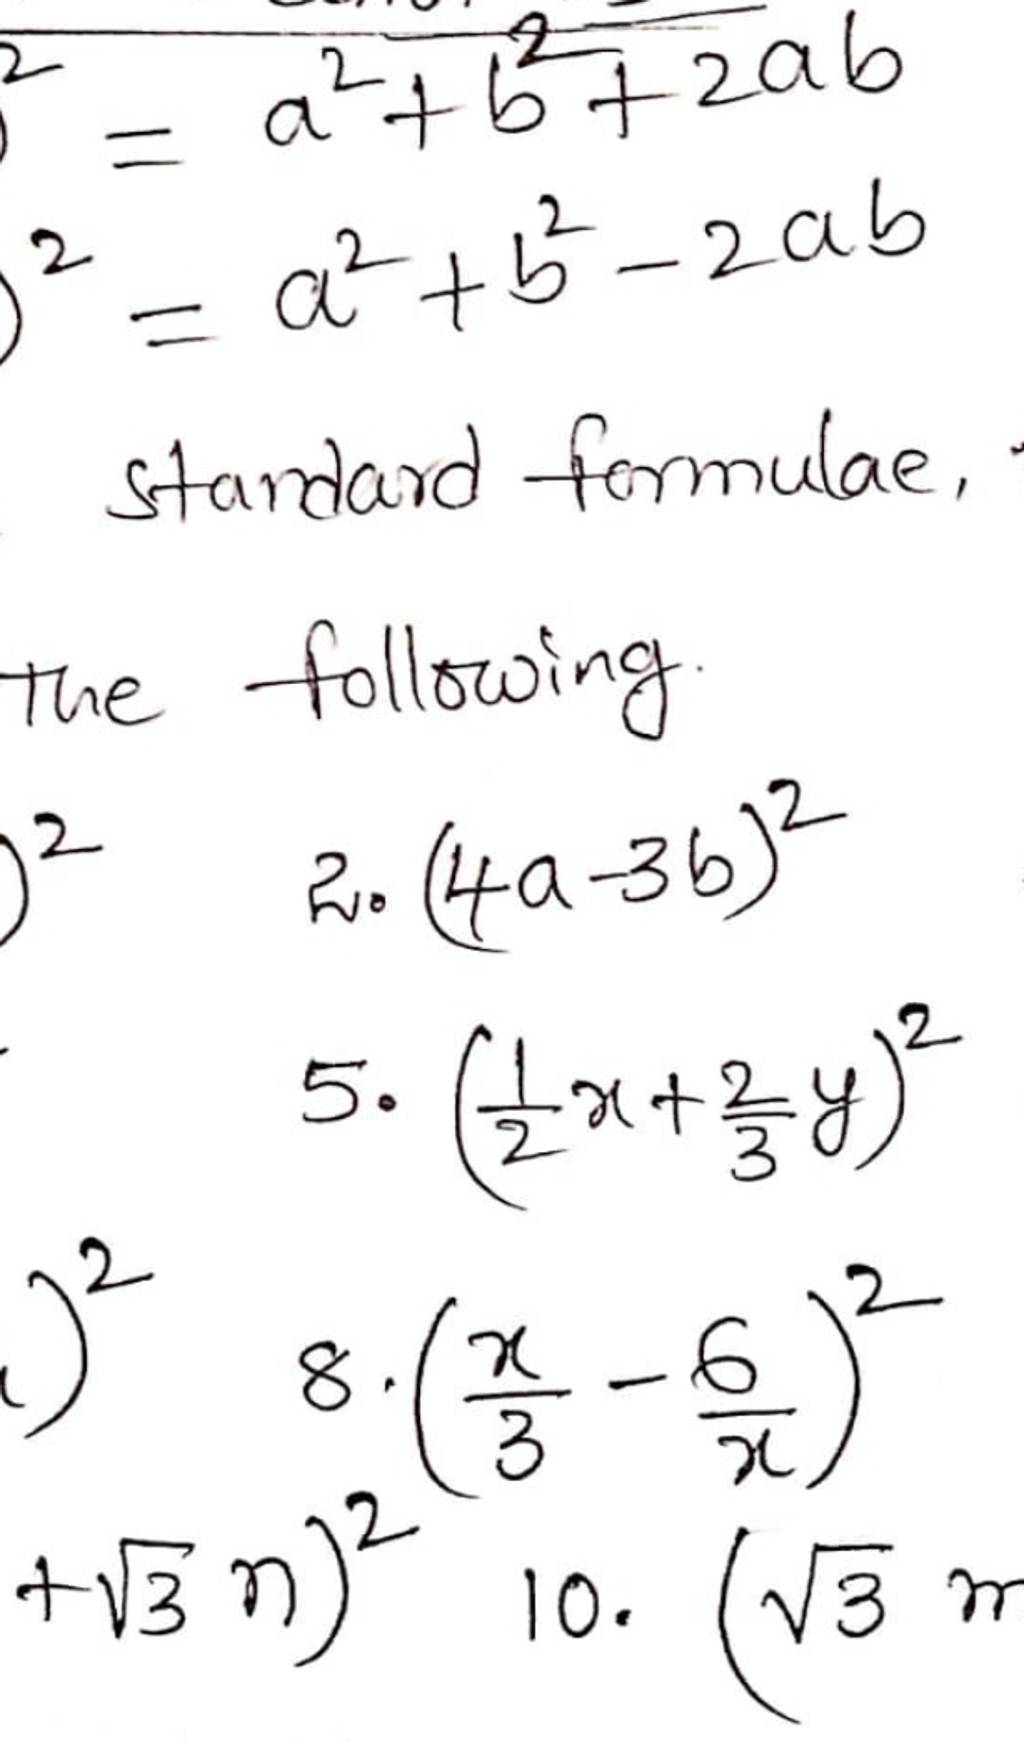 )² = a² + b² + 2ab
)² = a² + b² - 2ab
standard formulae,
the following.
)² 2. (4a-3b)²
5. (1/2 x + 2/3 y)²
)² 8. (x/3 - 6/x)²
+√3 n)² 10. (√3 m